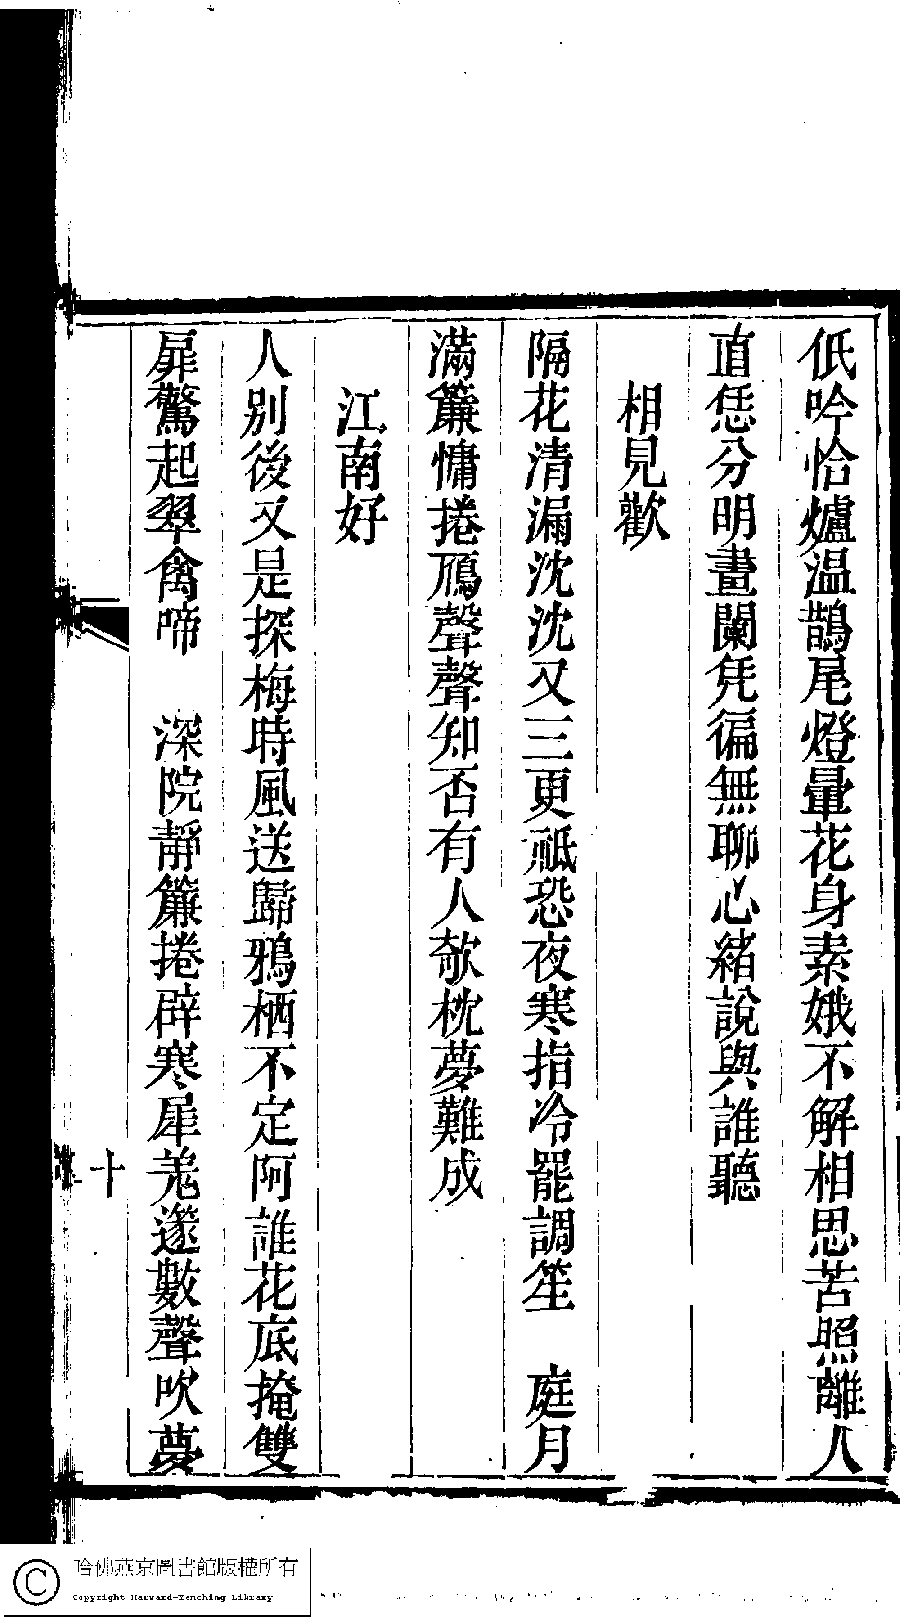 低吟恰爐温鵲尾燈暈花身素娥不解相思苦照離人
直恁分明畫闌凭徧無聊心緒說與誰聽
相見歡
隔花清漏沈沈又三更祗恐夜寒指冷罷調笙　庭月
滿簾慵捲鴈聲聲知否有人欹枕夢難成
江南好
人别後又是探梅時風送歸鴉栖不定阿誰花底掩雙
扉驚起翠禽啼　深院靜簾捲辟寒犀羗邃數聲吹夢
十
哈佛燕京圖書館版權所有
Copyright Harvard-Yenching Library